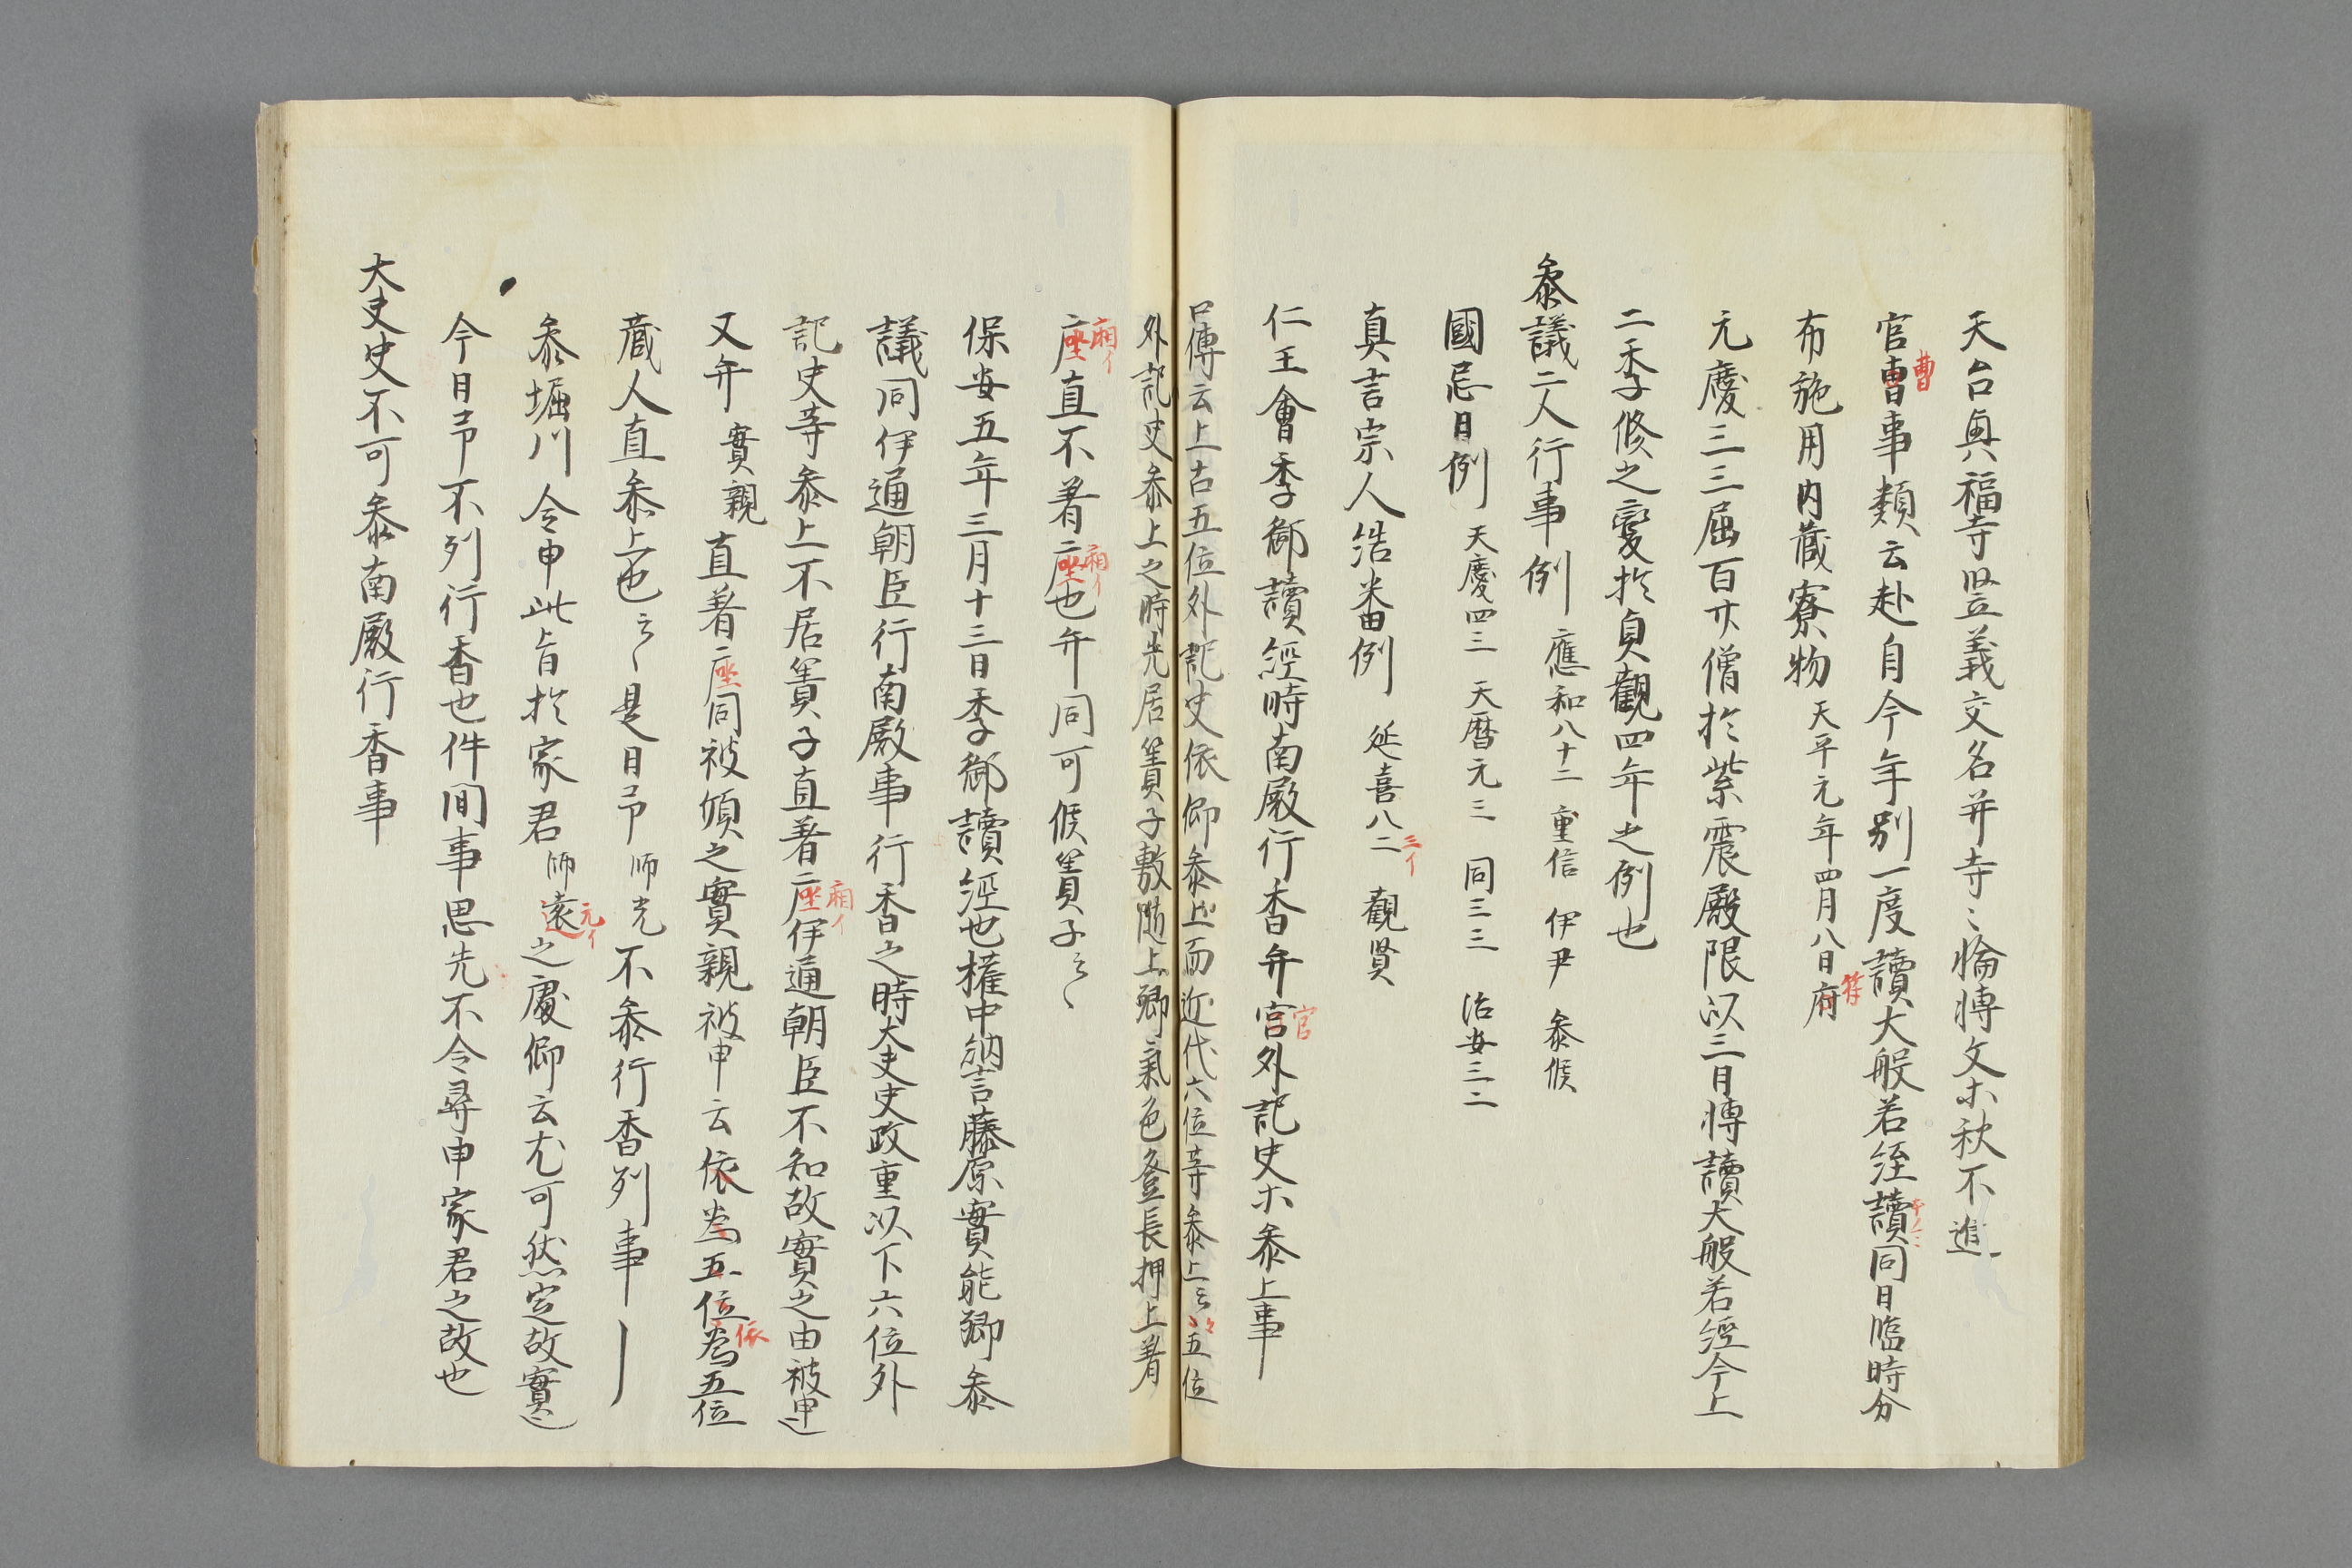 天台興福寺竪義交名并寺〻惀愽文ホ秋不進
官曹事類云赴自今年別一度讀大般若経讀同日臨時分
曹
布施用内蔵寮物 天平元年四月八日府
符
元慶三三屈百廿僧於紫震殿限以三日愽讀大般若經今上
二季修之憂於貞觀四年之例也
叅議二人行事例 應和八十二 重信 伊尹 叅候
國忌日例 天慶四三 天曆元三 同三三 治安三二
真言宗人浩番例 延喜八二 觀賢
三イ
仁王會季御讀經時南殿行香弁宮外記史ホ叅上事
官
口傳云上古五位外記史依仰叅上而近代六位等叅上云〻五位
外記史叅上之時先居簀子敷随上卿氣色登長押上着
座直不着座也弁同可候簀子云〻
廂イ 廂イ
保安五年三月十三日季御讀經也權中納言藤原實能卿叅
議同伊通朝臣行南殿事行香之時大夫史政重以下六位外
記史等叅上不居簀子直著座伊通朝臣不知故實之由被申
廂イ
又弁 實親 直著座同被傾之實親被申云依為五位為五位
依
蔵人直叅上也云〻是日予 師光 不叅行香列事
叅堀川令申此旨於家君 師遠 之處仰云尤可然定故實
元イ
今日予不列行香也件間事思先不令尋申家君之故也
大夫史不可叅南殿行香事